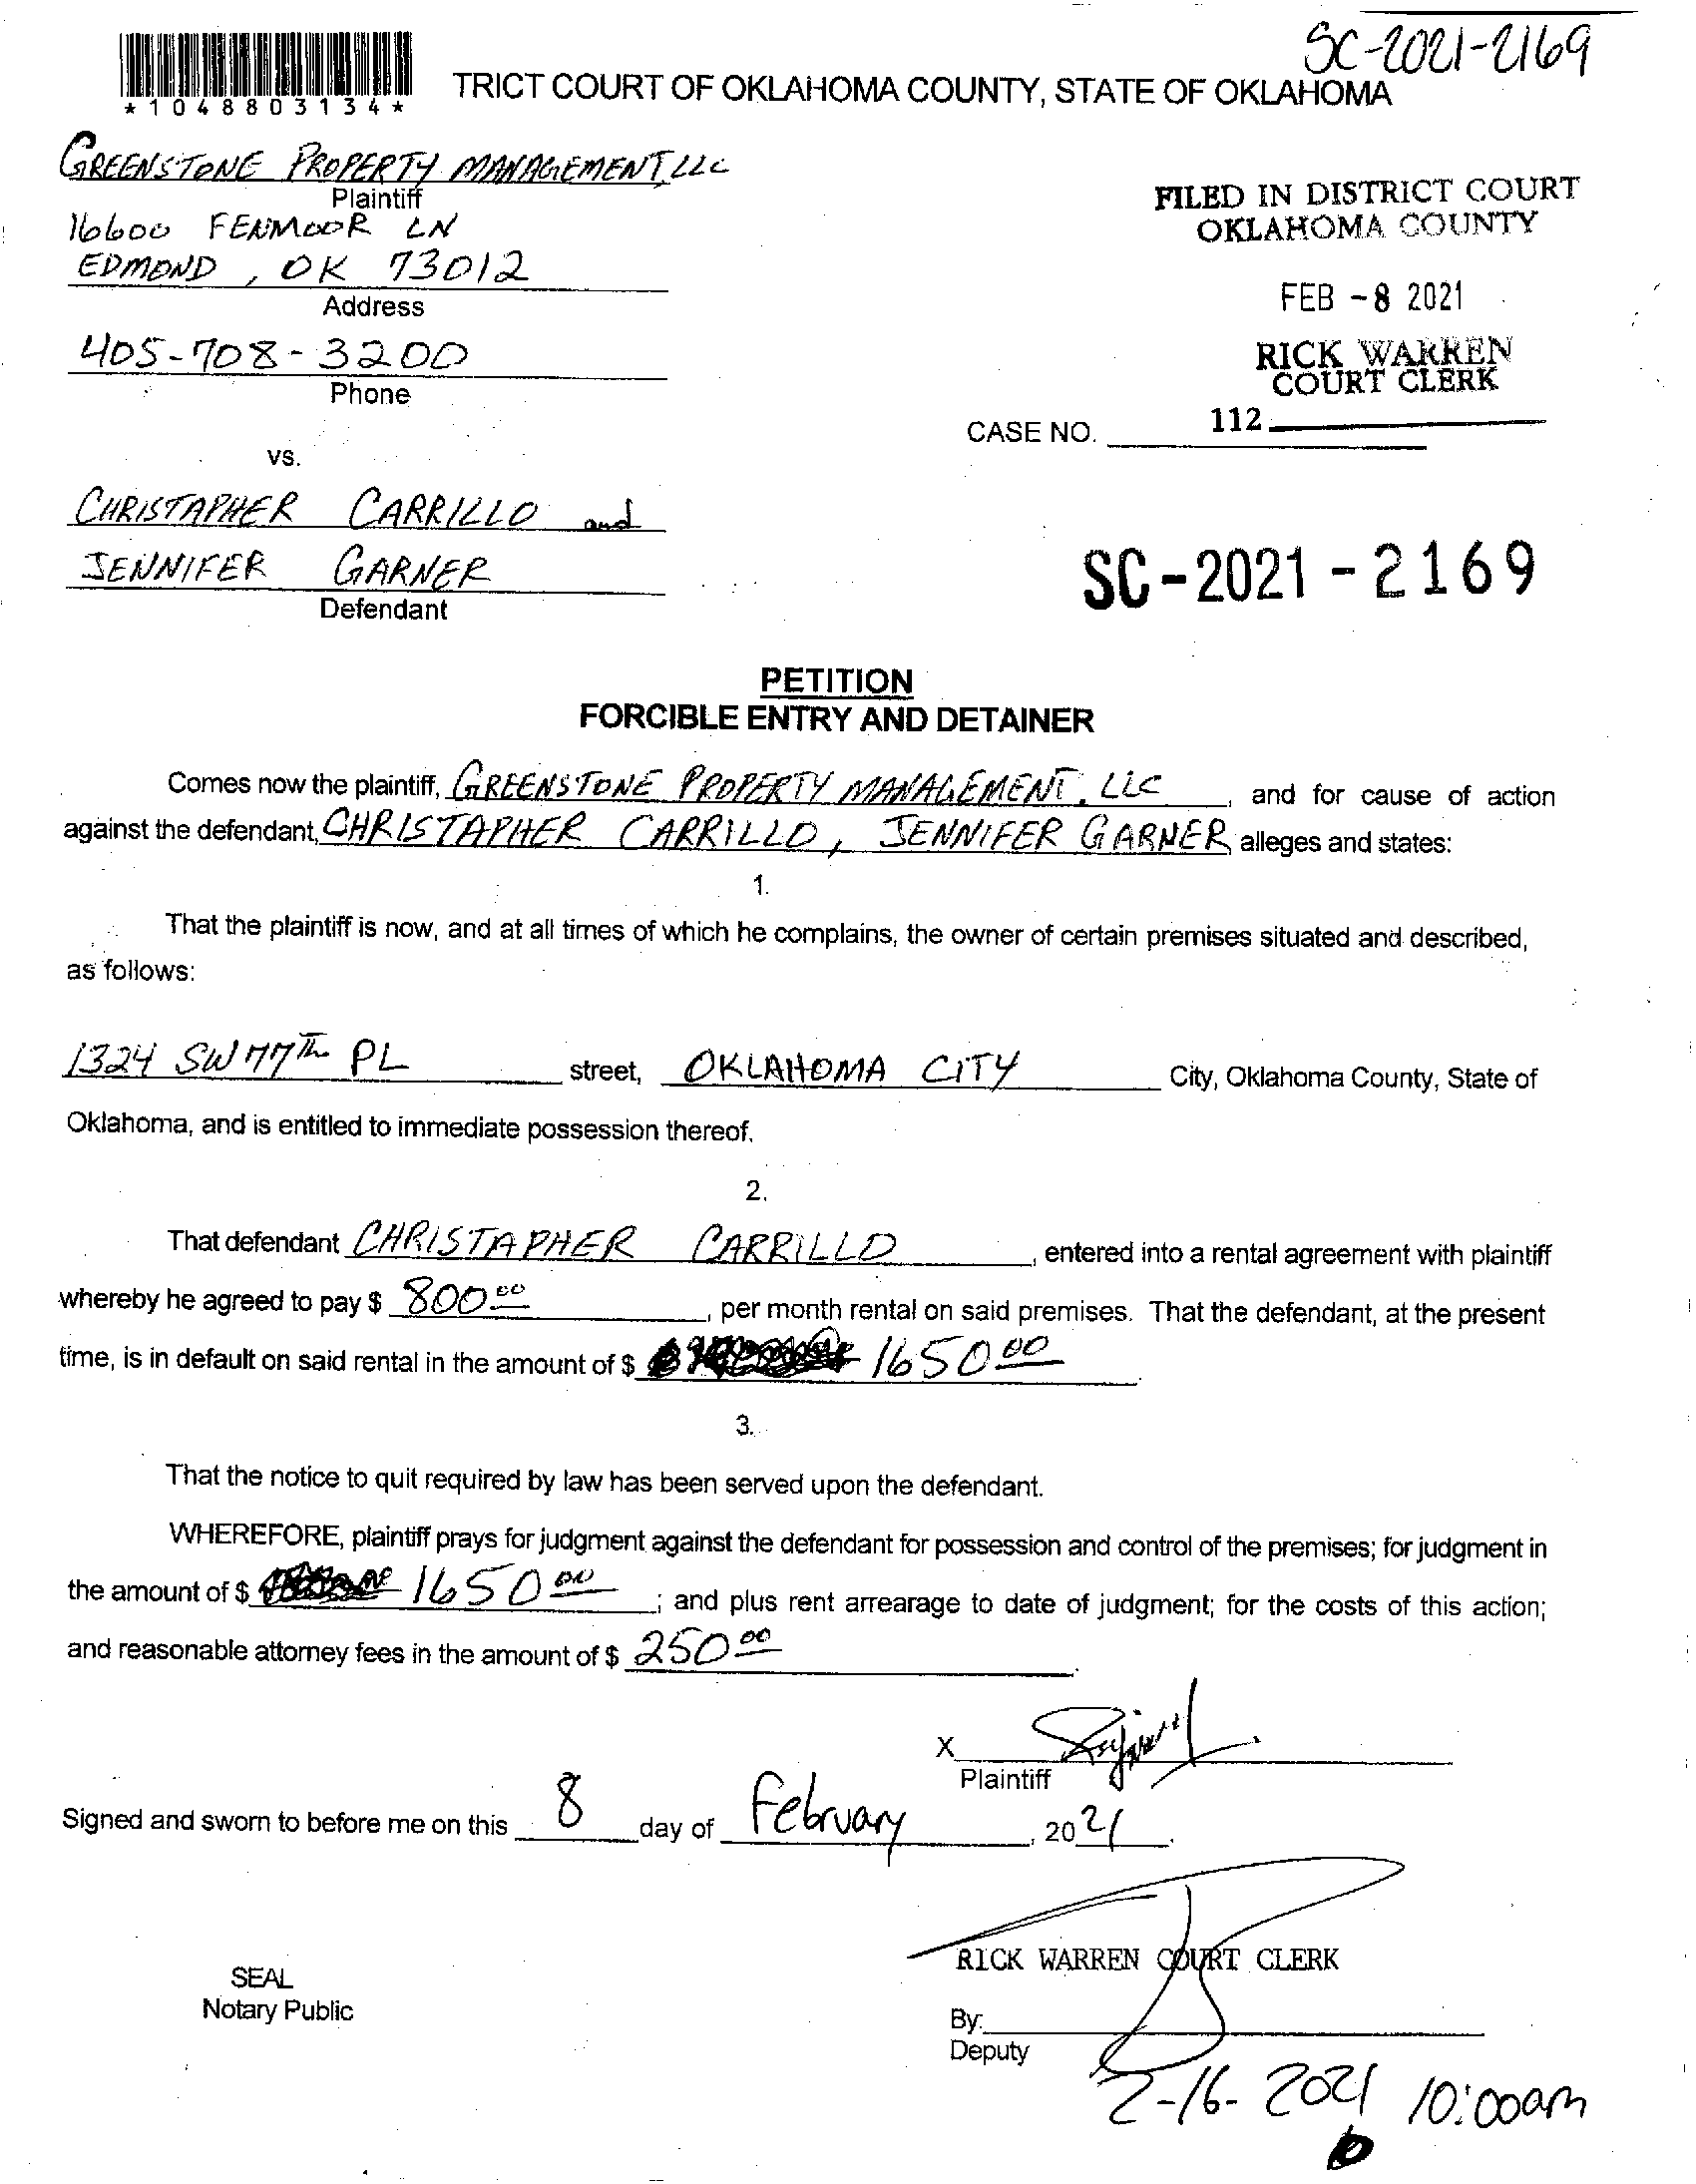 SC-2021-2169
*1048803134*
TRICT COURT OF OKLAHOMA COUNTY, STATE OF OKLAHOMA
GREENSTONE PROPERTY MANAGEMENT, LLC
Plaintiff
16600 FENMOOR LN
EDMOND, OK 73012
Address
405-708-3200
Phone
FILED IN DISTRICT COURT
OKLAHOMA COUNTY
FEB -8 2021
RICK WARREN
COURT CLERK
112
CASE NO.
vs.
CHRISTAPHER CARRILLO and
JENNIFER GARNER
Defendant
SC-2021-2169
PETITION
FORCIBLE ENTRY AND DETAINER
Comes now the plaintiff, GREENSTONE PROPERTY MANAGEMENT, LLC, and for cause of action
against the defendant, CHRISTAPHER CARRILLO, JENNIFER GARNER alleges and states:
1.
That the plaintiff is now, and at all times of which he complains, the owner of certain premises situated and described,
as follows:
1324 SW 77Th PL street, OKLAHOMA CITY City, Oklahoma County, State of
Oklahoma, and is entitled to immediate possession thereof.
2.
That defendant CHRISTAPHER CARRILLO, entered into a rental agreement with plaintiff
whereby he agreed to pay $ 800 00, per month rental on said premises. That the defendant, at the present
time, is in default on said rental in the amount of $ 1650 00.
3.
That the notice to quit required by law has been served upon the defendant.
WHEREFORE, plaintiff prays for judgment against the defendant for possession and control of the premises; for judgment in
the amount of $ 1650 00; and plus rent arrearage to date of judgment; for the costs of this action;
and reasonable attorney fees in the amount of $ 250 00.
X
Plaintiff
Signed and sworn to before me on this 8 day of February, 2021.
RICK WARREN COURT CLERK
SEAL
Notary Public
By:
Deputy
2-16-2021 10:00am